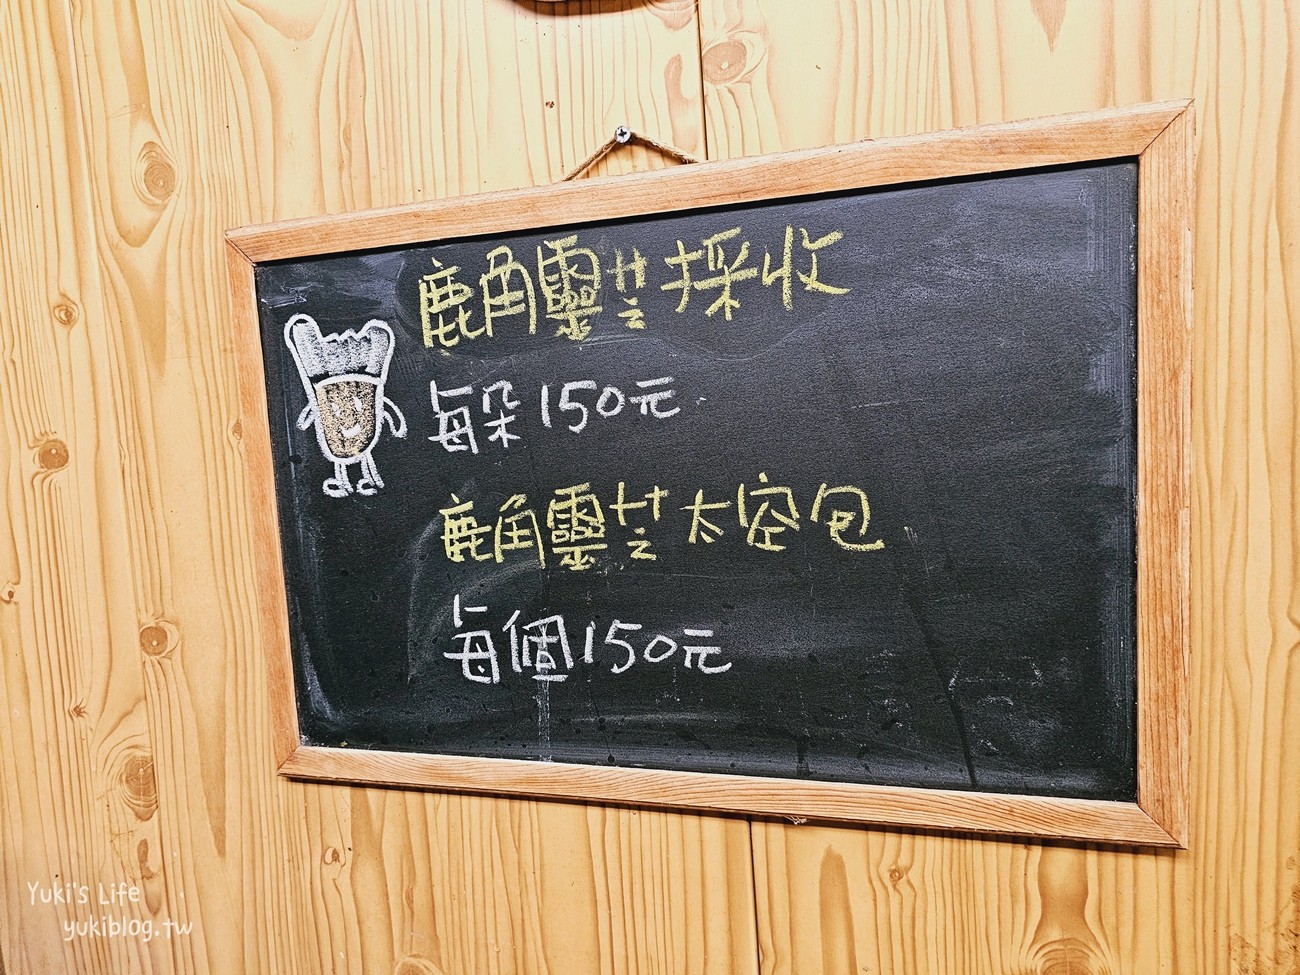 鹿角靈芝採收
每朵150元
鹿角靈芝太空包
每個150元
Yuki's Life
yukiblog.tw